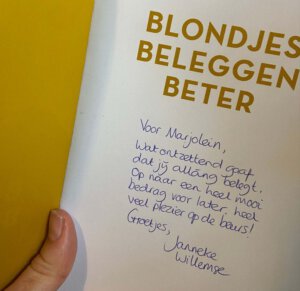 BLONDJES
BELEGGEN
BETER
Voor Marjolein,
Wat ontzettend gaaf
dat jij allang belegt..
Op naar een heel mooi
bedrag voor later, heel
veel plezier op de beurs!
Groetjes,
Janneke
Willemse